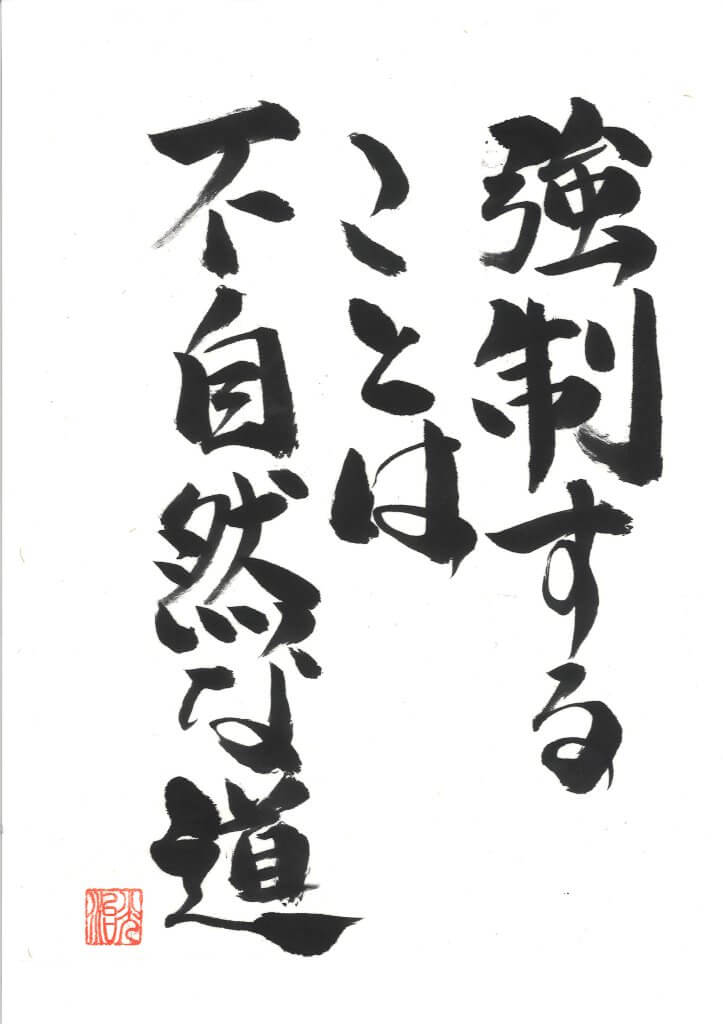 強制する
ことは
不自然な道